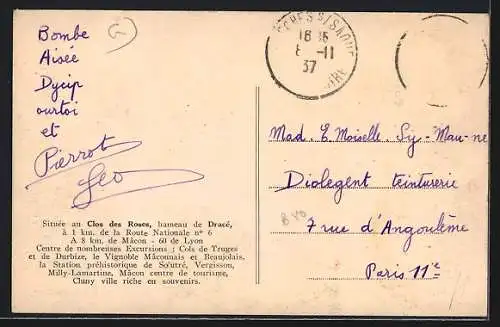 Bombe
Aisée
Dycip
ourtoi
et
Pierrot
Geo
Située au Clos des Roses, hameau de Dracé,
à 1 km. de la Route Nationale n° 6
A 8 km. de Mâcon - 60 de Lyon
Centre de nombreuses Excursions : Cols de Truges
et de Durbize, le Vignoble Mâconnais et Beaujolais.
la Station préhistorique de Solutré, Vergisson,
Milly-Lamartine, Mâcon centre de tourisme,
Cluny ville riche en souvenirs.
18 35
8 -11
37
Mad. E. Moiselle. Sy-Mau-ne
Diolegent teinturerie
7 rue d'Angoulême
Paris 11e